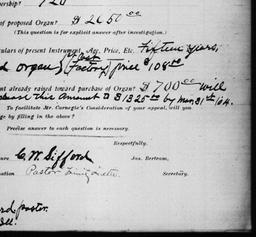 bership? 720
of proposed Organ? $2650.00
(This question is for explicit answer after investigation.)
culars of present Instrument, Age, Price, Etc. Fifteen years,
organ (Factory) price $108.00
nt already raised toward purchase of Organ? $700.00 will
this Amount to $1325.00 by 31st
To facilitate Mr. Carnegie's Consideration of your appeal, will you
ge by filling in the above?
Precise answer to each question is necessary.
Respectfully,
ure C. M. Gifford Jas. Bertram,
ation Pastor Secretary.
pastor.